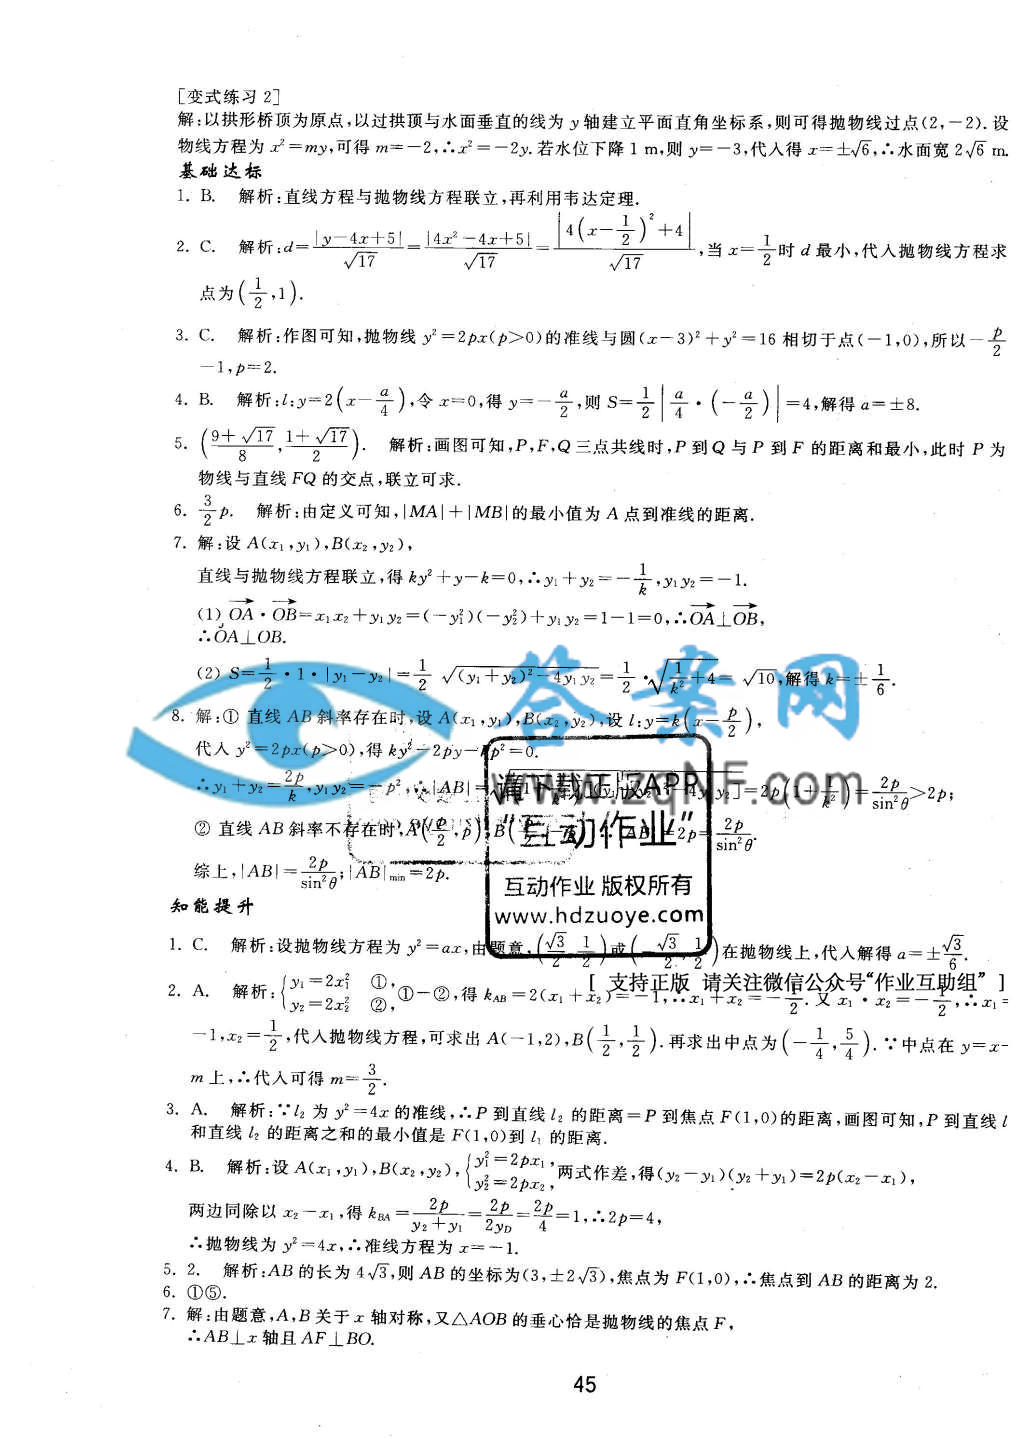 [变式练习 2]
解:以拱形桥顶为原点,以过拱顶与水面垂直的线为 y 轴建立平面直角坐标系,则可得抛物线过点(2,-2). 设
物线方程为 x²=my,可得 m=-2,∴x²=-2y. 若水位下降 1 m,则 y=-3,代入得 x=±√6,∴水面宽 2√6 m.
基础达标
1. B. 解析:直线方程与抛物线方程联立,再利用韦达定理.
2. C. 解析:d=|y-4x+5|/√17=|4x²-4x+5|/√17=|4(x-1/2)²+4|/√17,当 x=1/2时 d 最小,代入抛物线方程求
点为(1/2,1).
3. C. 解析:作图可知,抛物线 y²=2px(p>0)的准线与圆(x-3)²+y²=16 相切于点(-1,0),所以-p/2
-1,p=2.
4. B. 解析:l:y=2(x-a/4),令 x=0,得 y=-a/2,则 S=1/2|a/4·(-a/2)|=4,解得 a=±8.
5. ((9+√17)/8,(1+√17)/2). 解析:画图可知,P,F,Q 三点共线时,P 到 Q 与 P 到 F 的距离和最小,此时 P 为
物线与直线 FQ 的交点,联立可求.
6. 3/2 p. 解析:由定义可知,|MA|+|MB|的最小值为 A 点到准线的距离.
7. 解:设 A(x₁,y₁),B(x₂,y₂),
直线与抛物线方程联立,得 ky²+y-k=0,∴y₁+y₂=-1/k,y₁y₂=-1.
(1) OA·OB=x₁x₂+y₁y₂=(-y₁²)(-y₂²)+y₁y₂=1-1=0,∴OA⊥OB,
∴OA⊥OB.
(2) S=1/2·1·|y₁-y₂|=1/2√((y₁+y₂)²-4y₁y₂)=1/2·√(1/k²+4)=√10,解得 k=±1/6.
答案网
8. 解:① 直线 AB 斜率存在时,设 A(x₁,y₁),B(x₂,y₂),设 l:y=k(x-p/2),
代入 y²=2px(p>0),得 ky²-2py-kp²=0.
∴y₁+y₂=2p/k,y₁y₂=-p²,∴|AB|=2p(1+1/k²)=2p/sin²θ>2p;
www.zqnf.com
② 直线 AB 斜率不存在时,A(p/2,p),B =2p=2p/sin²θ.
综上,|AB|=2p/sin²θ;|AB|min=2p.
请下载正版APP
“互动作业”
互动作业 版权所有
www.hdzuoye.com
知能提升
1. C. 解析:设抛物线方程为 y²=ax,由题意,(√3/2,1/2)或(-√3/2,1/2)在抛物线上,代入解得 a=±√3/6.
[ 支持正版 请关注微信公众号“作业互助组” ]
2. A. 解析:{y₁=2x₁² ①, y₂=2x₂² ②, ①-②,得 kAB=2(x₁+x₂)=-1,∴x₁+x₂=-1/2. 又 x₁·x₂=-1/2,∴x₁=
-1,x₂=1/2,代入抛物线方程,可求出 A(-1,2),B(1/2,1/2). 再求出中点为(-1/4,5/4). ∵中点在 y=x-
m 上,∴代入可得 m=3/2.
3. A. 解析:∵l₂ 为 y²=4x 的准线,∴P 到直线 l₂ 的距离=P 到焦点 F(1,0)的距离,画图可知,P 到直线 l
和直线 l₂ 的距离之和的最小值是 F(1,0)到 l₁ 的距离.
4. B. 解析:设 A(x₁,y₁),B(x₂,y₂),{y₁²=2px₁, y₂²=2px₂, 两式作差,得(y₂-y₁)(y₂+y₁)=2p(x₂-x₁),
两边同除以 x₂-x₁,得 kBA=2p/(y₂+y₁)=2p/2yD=2p/4=1,∴2p=4,
∴抛物线为 y²=4x,∴准线方程为 x=-1.
5. 2. 解析:AB 的长为 4√3,则 AB 的坐标为(3,±2√3),焦点为 F(1,0),∴焦点到 AB 的距离为 2.
6. ①⑤.
7. 解:由题意,A,B 关于 x 轴对称,又△AOB 的垂心恰是抛物线的焦点 F,
∴AB⊥x 轴且 AF⊥BO.
45